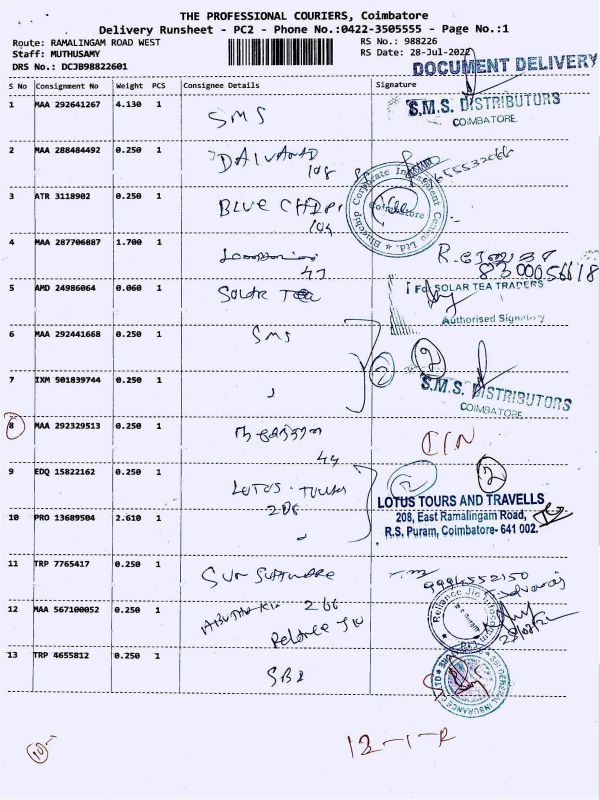 THE PROFESSIONAL COURIERS, Coimbatore
Delivery Runsheet - PC2 - Phone No.:0422-3505555 - Page No.:1
Route: RAMALINGAM ROAD WEST
RS No.: 988226
Staff: MUTHUSAMY
RS Date: 28-Jul-2022
DRS No.: DCJB98822601
DOCUMENT DELIVERY
S No Consignment No Weight PCS Consignee Details Signature
1 MAA 292641267 4.130 1 SMS
S.M.S. DISTRIBUTORS
COIMBATORE
2 MAA 288484492 0.250 1
108
3 ATR 3118902 0.250 1 BLUE CHIP
104
Bluechip Corporate Investment Centre Ltd.
Coimbatore
4 MAA 287706887 1.700 1
47
8300056618
5 AMD 24986064 0.060 1 SOLAR Tea
For SOLAR TEA TRADERS
Authorised Signatory
6 MAA 292441668 0.250 1 SMS
2 2
7 IXM 501839744 0.250 1 "
S.M.S. DISTRIBUTORS
COIMBATORE
8 MAA 292329513 0.250 1
44
9 EDQ 15822162 0.250 1 LOTUS. TOURS
208
2 2
LOTUS TOURS AND TRAVELLS
208, East Ramalingam Road,
R.S. Puram, Coimbatore- 641 002.
10 PRO 13689504 2.610 1 "
11 TRP 7765417 0.250 1 SUN SOFTWARE
9994552150
12 MAA 567100052 0.250 1 266
Reliance Jio
Reliance Jio Infocomm Ltd
13 TRP 4655812 0.250 1 SBI
SBI GENERAL INSURANCE CO LTD
10
12-1-R